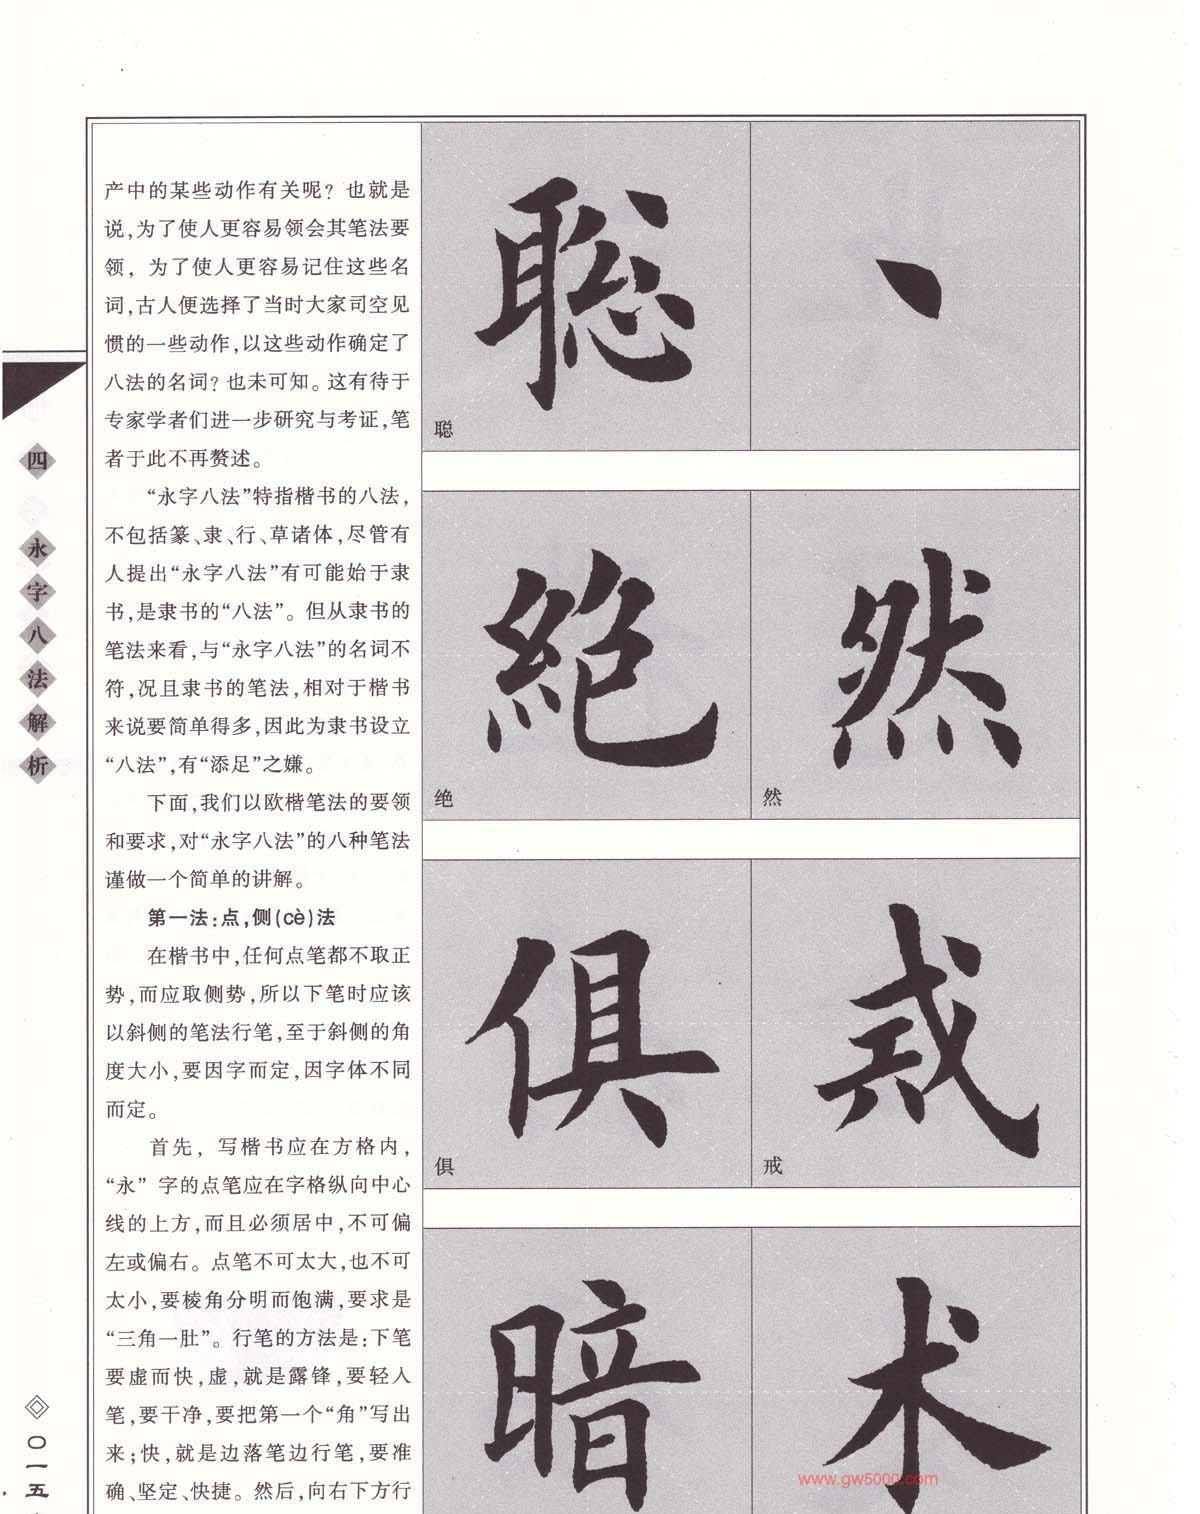 产中的某些动作有关呢？也就是
说，为了使人更容易领会其笔法要
领，为了使人更容易记住这些名
词，古人便选择了当时大家司空见
惯的一些动作，以这些动作确定了
八法的名词？也未可知。这有待于
专家学者们进一步研究与考证，笔
者于此不再赘述。
“永字八法”特指楷书的八法，
不包括篆、隶、行、草诸体，尽管有
人提出“永字八法”有可能始于隶
书，是隶书的“八法”。但从隶书的
笔法来看，与“永字八法”的名词不
符，况且隶书的笔法，相对于楷书
来说要简单得多，因此为隶书设立
“八法”，有“添足”之嫌。
下面，我们以欧楷笔法的要领
和要求，对“永字八法”的八种笔法
谨做一个简单的讲解。
第一法：点，侧（cè）法
在楷书中，任何点笔都不取正
势，而应取侧势，所以下笔时应该
以斜侧的笔法行笔，至于斜侧的角
度大小，要因字而定，因字体不同
而定。
首先，写楷书应在方格内，
“永”字的点笔应在字格纵向中心
线的上方，而且必须居中，不可偏
左或偏右。点笔不可太大，也不可
太小，要棱角分明而饱满，要求是
“三角一肚”。行笔的方法是：下笔
要虚而快，虚，就是露锋，要轻入
笔，要干净，要把第一个“角”写出
来；快，就是边落笔边行笔，要准
确、坚定、快捷。然后，向右下方行
聪 丶
聪
絶 然
绝 然
俱 戒
俱 戒
暗 术
四 永字八法解析
〇一五
www.gw5000.com